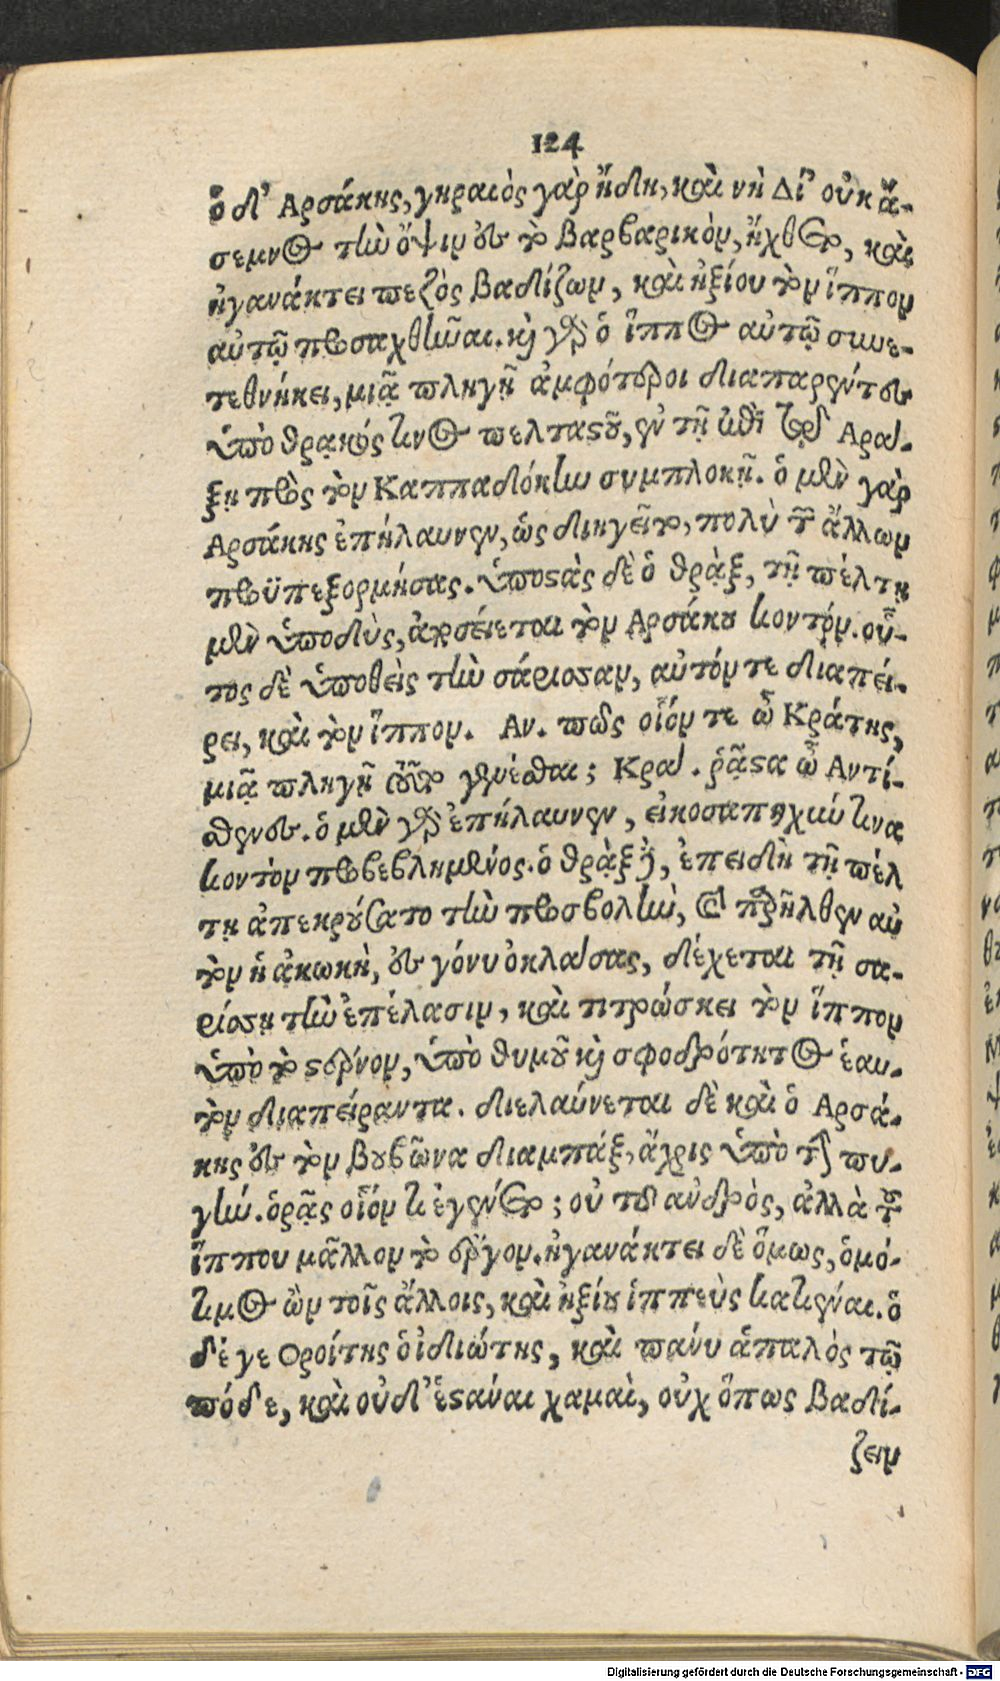 124
ὁ δ' Ἀρσάκης, γηραιὸς γὰρ ἤδη, καὶ νὴ Δί' οὐκ ἄ-
σεμνος τὴν ὄψιν εἰς τὸ βαρβαρικὸν, ἤχθετο, καὶ
ἠγανάκτει πεζὸς βαδίζων, καὶ ἠξίου τὸν ἵππον
αὐτῷ προσαχθῆναι. καὶ γὰρ ὁ ἵππος αὐτῷ συνε-
τεθνήκει, μιᾷ πληγῇ ἀμφότεροι διαπαρέντες
ὑπὸ θρᾳκός τινος πελταστοῦ, ἐν τῇ ἐπὶ τῷ Ἀρά-
ξῃ πρὸς τὸν Καππαδόκην συμπλοκῇ. ὁ μὲν γὰρ
Ἀρσάκης ἐπήλαυνεν, ὡς διηγεῖτο, πολὺ τῶν ἄλλων
προϋπεξορμήσας. ὑποστὰς δὲ ὁ θρᾷξ, τῇ πέλτῃ
μὲν ὑποδὺς, ἀποσείεται τὸν Ἀρσάκου κοντόν. οὗ-
τος δὲ ὑποθεὶς τὴν σάρισσαν, αὐτόν τε διαπεί-
ρει, καὶ τὸν ἵππον. Αν. πῶς οἷόν τε ὦ Κράτης,
μιᾷ πληγῇ τοῦτο γενέσθαι; Κρά. ῥᾷστα ὦ Ἀντί-
σθενες. ὁ μὲν γὰρ ἐπήλαυνεν, εἰκοσαπηχύν τινα
κοντὸν προβεβλημένος. ὁ θρᾷξ δὲ, ἐπειδὴ τῇ πέλ
τῃ ἀπεκρούσατο τὴν προσβολὴν, καὶ παρῆλθεν αὐ
τὸν ἡ ἀκωκὴ, ἐς γόνυ ὀκλάσας, δέχεται τῇ σα-
ρίσσῃ τὴν ἐπέλασιν, καὶ τιτρώσκει τὸν ἵππον
ὑπὸ τὸ στέρνον, ὑπὸ θυμοῦ καὶ σφοδρότητος ἑαυ-
τὸν διαπείραντα. διελαύνεται δὲ καὶ ὁ Ἀρσά-
κης ἐς τὸν βουβῶνα διαμπὰξ, ἄχρις ὑπὸ τὴν πυ-
γήν. ὁρᾷς οἷόν τι ἐγένετο; οὐ τοῦ ἀνδρὸς, ἀλλὰ τοῦ
ἵππου μᾶλλον τὸ ἔργον. ἠγανάκτει δὲ ὅμως, ὁμό-
τιμος ὢν τοῖς ἄλλοις, καὶ ἠξίου ἱππεὺς κατιέναι. ὁ
δέ γε Ὀροίτης ὁ ἰδιώτης, καὶ πάνυ ἁπαλὸς τὼ
πόδε, καὶ οὐδ' ἑστάναι χαμαὶ, οὐχ ὅπως βαδί-
ζειν
Digitalisierung gefördert durch die Deutsche Forschungsgemeinschaft - DFG